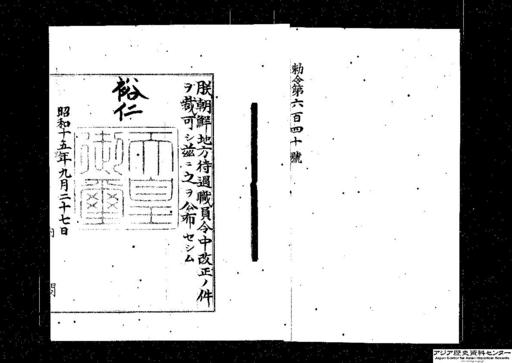 勅令第六百四十號
朕朝鮮地方待遇職員令中改正ノ件
ヲ裁可シ茲ニ之ヲ公布セシム
裕仁
天皇御璽
昭和十五年九月二十七日
アジア歴史資料センター
Japan Center for Asian Historical Records